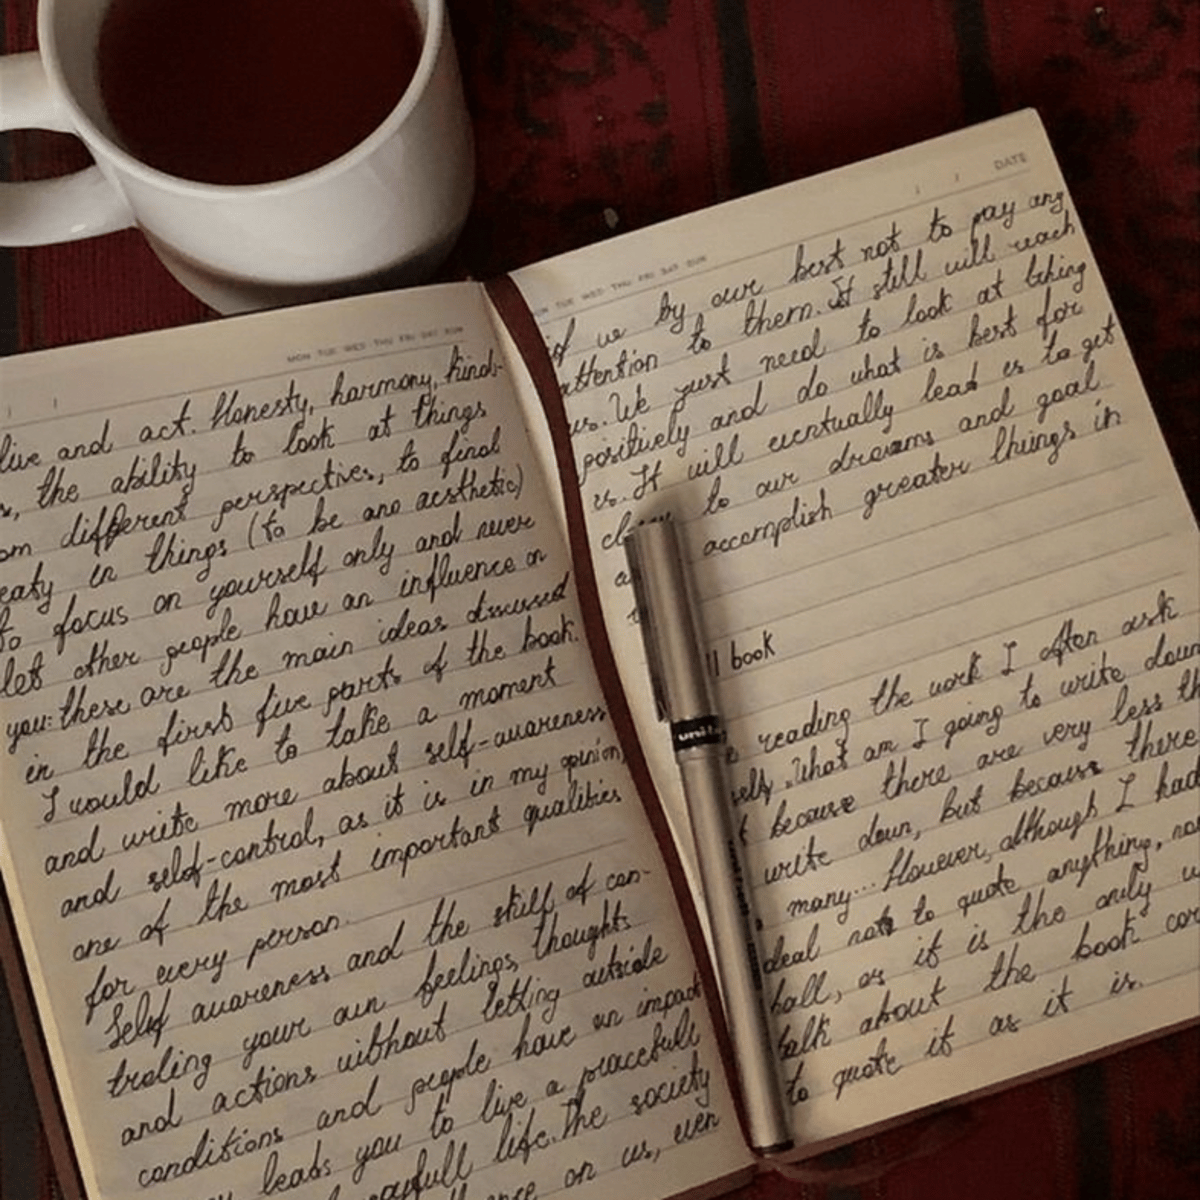 MON TUE WED THU FRI SAT SUN
live and act. Honesty, harmony, kind-
s, the ability to look at things
om different perspectives, to find
eaty in things (to be ano aesthetic)
To focus on yourself only and never
let other people have an influence on
you: these are the main ideas discussed
in the first five parts of the book.
I would like to take a moment
and write more about self-awareness
and self-control, as it is in my opinion,
one of the most important qualities
for every person.
Self awareness and the skill of con-
troling your own feelings, thoughts
and actions without letting outside
conditions and people have an impact
leads you to live a peacefull
life. The society
on us, even
DATE
MON TUE WED THU FRI SAT SUN
if we by our best not to pay any
attention to them. It still will reach
us. We just need to look at thing
positively and do what is best for
us. It will eventually lead us to get
to our dreams and goal
accomplish greater things in
ll book
reading the work I often ask
self. What am I going to write down
because there are very less th
write down, but because there
many... However, although I had
deal not to quote anything, no
hall, as it is the only w
talk about the book con
to quote it as it is.
uni